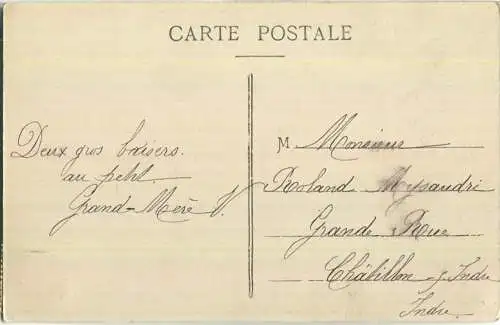 CARTE POSTALE
Deux gros baisers.
au petit.
Grand-Mère V.
M Monsieur
Roland
Grande Rue
Châtillon s/ Indre
Indre.